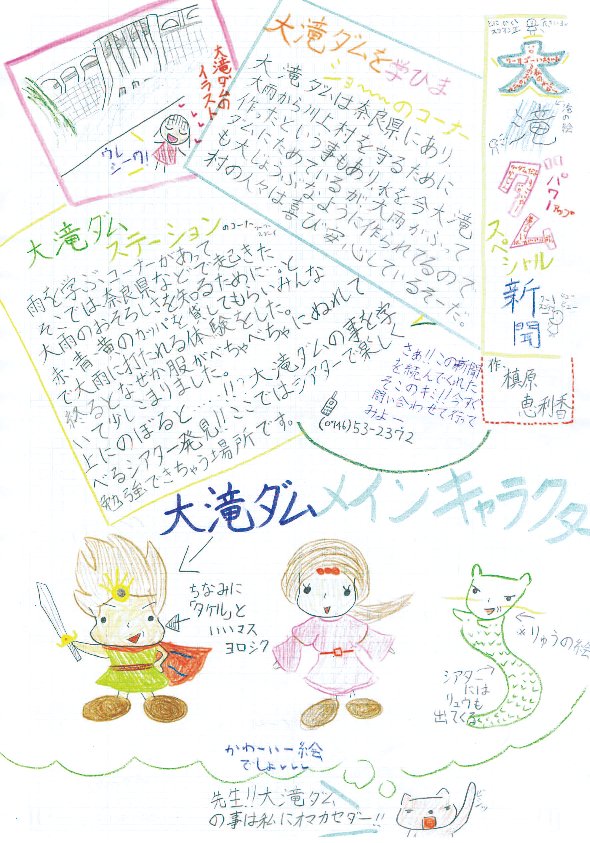 大
滝
パワー
アップ
スペシャル
新
聞
作、
槙原
恵利香
大滝ダムの
イラスト
ウレ
シーワ!
大滝ダムを学びま
しょ〜〜のコーナー
大滝ダムは奈良県にあり、
大雨から川上村を守るために
作ったという事もあり、水を今大滝
ダムにためているが、大雨がふって
も大じょうぶなように作られてるので
村の人々は喜び安心しているそーだ。
大滝ダム
ステーションのコーナー
雨を学ぶコーナーがあって
そこでは奈良県などで起きた
大雨のおそろしさを知るために…。と
赤、青、黄のカッパを貸してもらいみんな
で大雨に打たれる体験をした。
終るとなぜか服がべちゃべちゃにぬれて
いて少しこまりました。
上にのぼると……!!大滝ダムの事を学
べるシアター発見!!ここではシアターで楽しく
勉強できちゃう場所です。
さぁ!!この新聞
を読んでくれた
そこのキミ!!今すぐ
問い合わせて行って
みよー
(0746)53-2372
大滝ダムメインキャラクター
ちなみに
「タケル」と
いいマス
ヨロシク
※りゅうの絵
シアター
には
リュウも
出てくる
かわいー絵
でしょ
先生!!大滝ダム
の事は私にオマカセダー!!